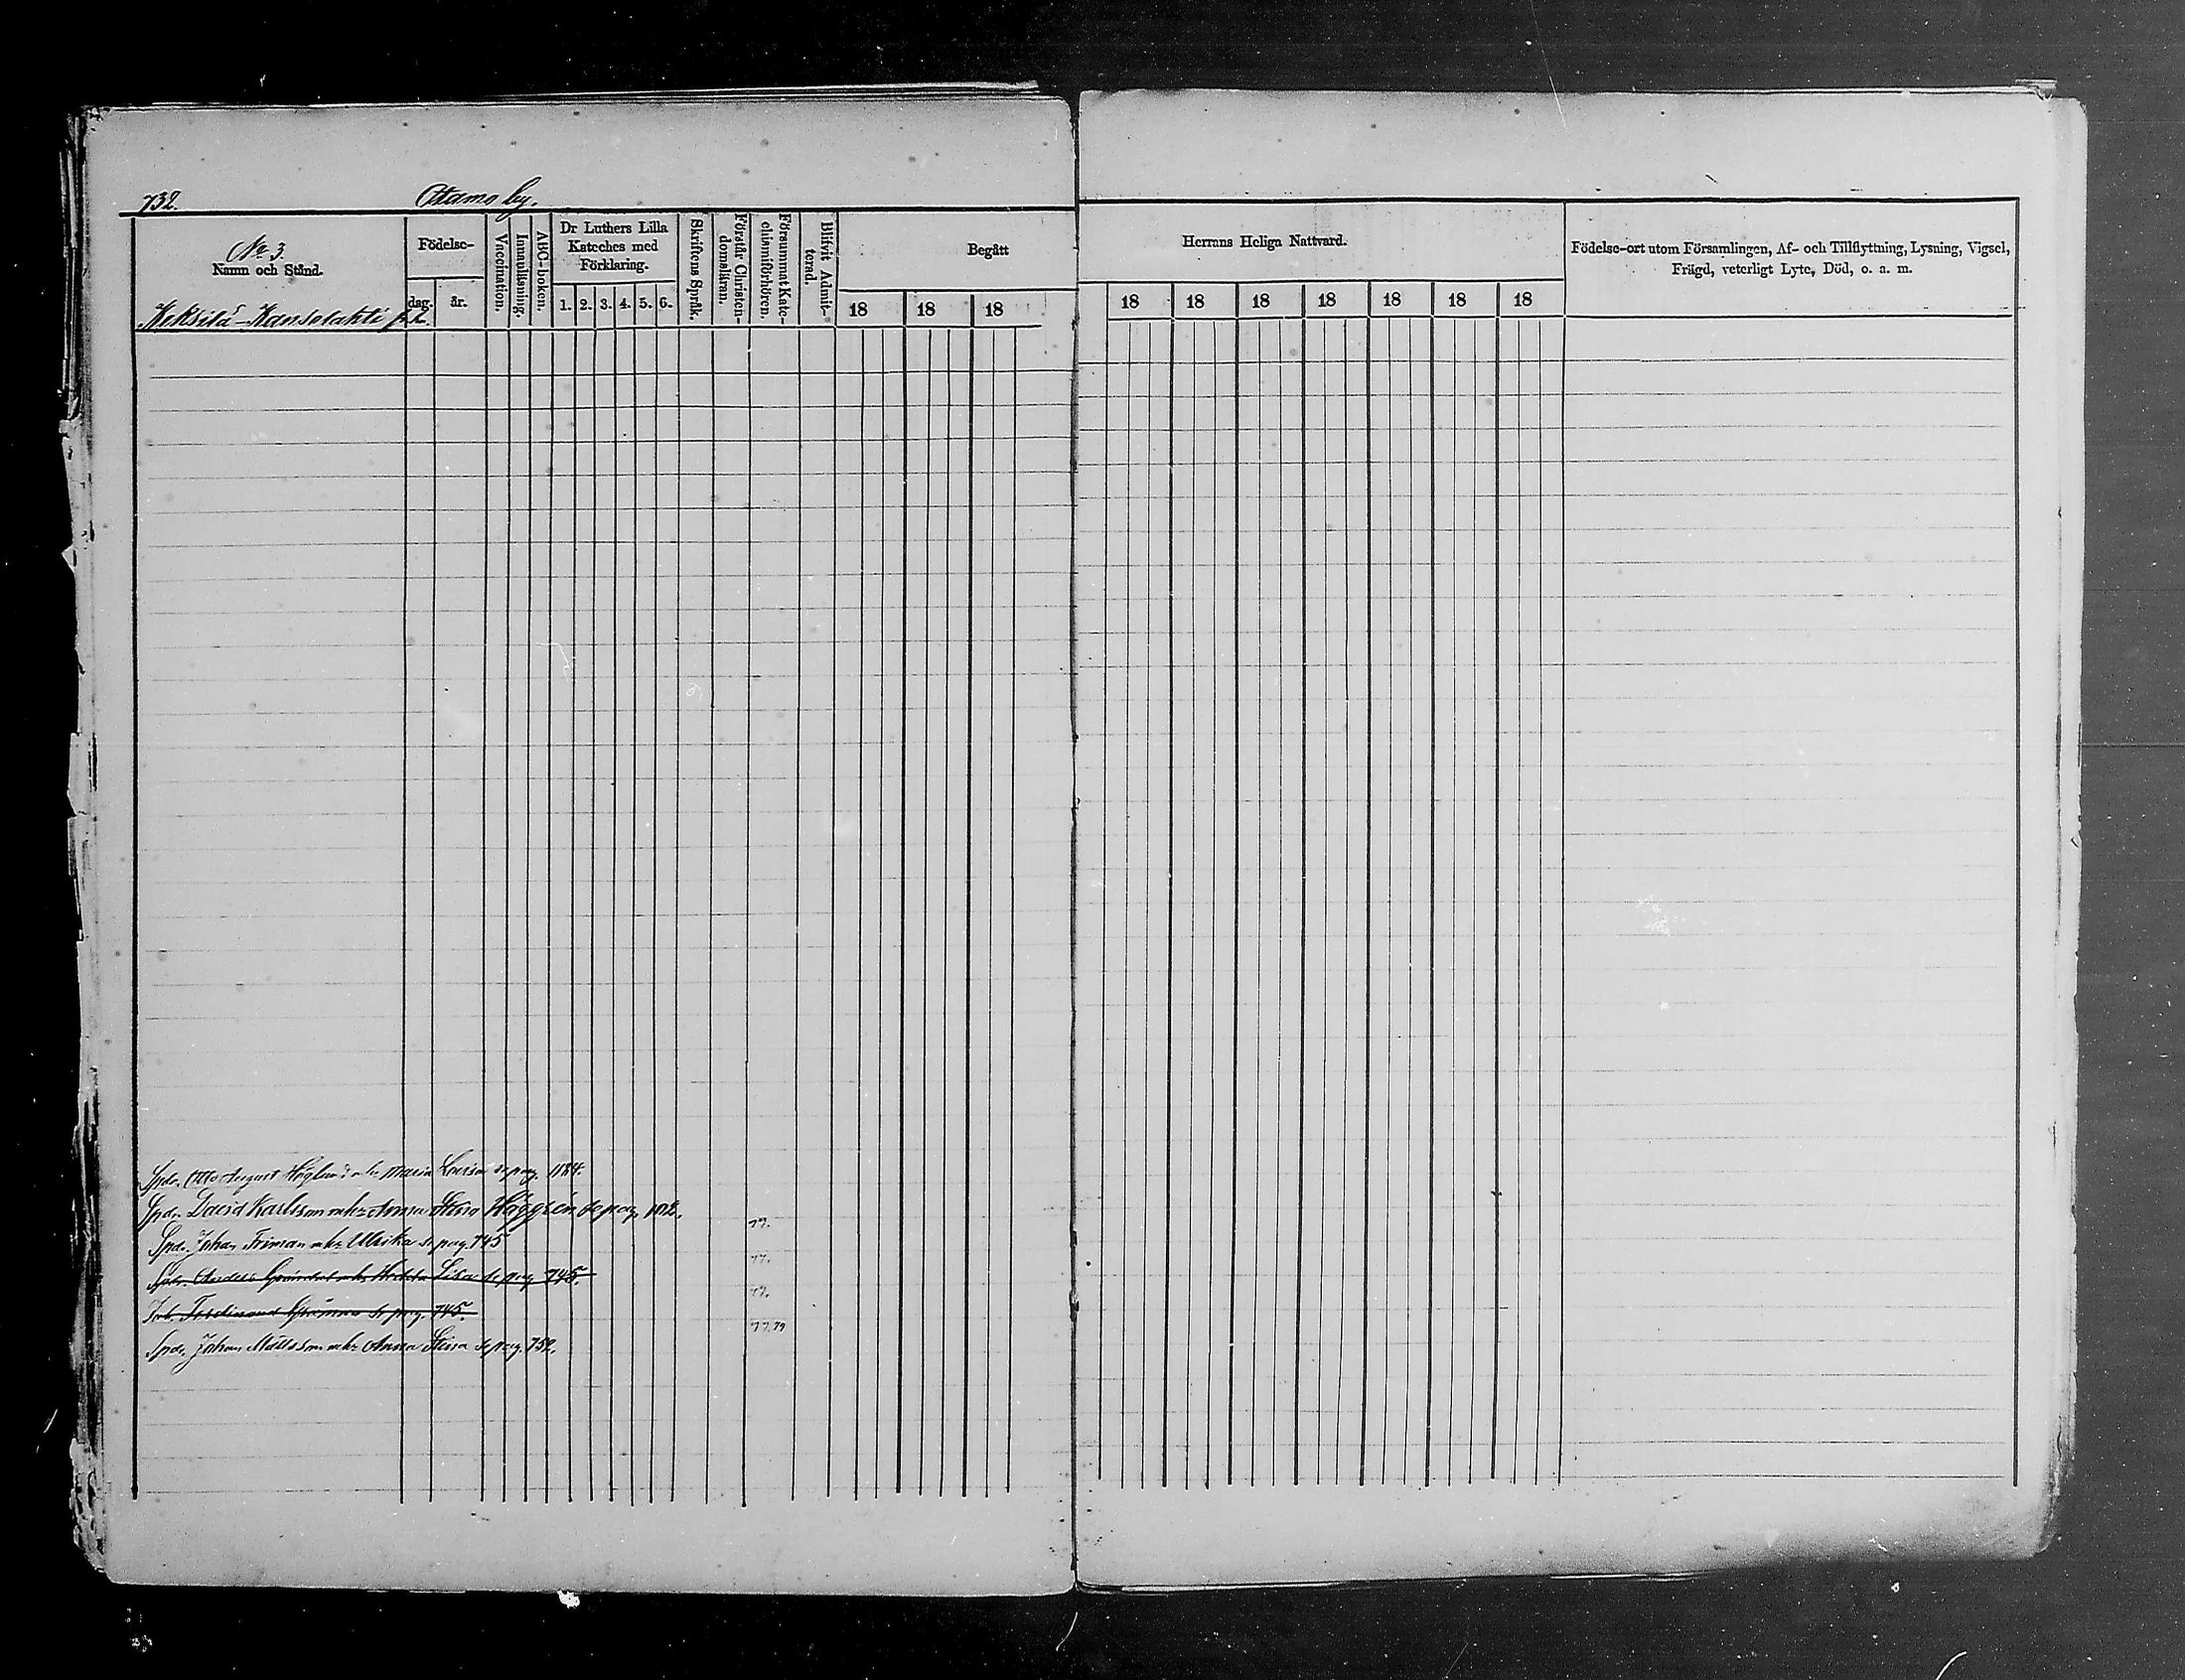 732. Atamo by.
No 3.
Namn och Stånd.
Keksilä-Kansolahti
Födelse-
dag. år.
Vaccination.
Innanläsning.
ABC-boken.
Dr Luthers Lilla
Kateches med
Förklaring.
1. 2. 3. 4. 5. 6.
Skriftens Språk.
Förstår Christen-
domsläran.
Försummat Kate-
chismiförhören.
Blifvit Admit-
terad.
Begått Herrans Heliga Nattvard.
18 18 18 18 18 18 18 18 18 18
Födelse-ort utom Församlingen, Af- och Tillflyttning, Lysning, Vigsel,
Frägd, veterligt Lyte, Död, o. a. m.
Spdr. Otto August Höglund o hu Maria Lovisa se pag. 1184.
Spdr. David Karlsson o hu Anna Stina Häggren se pag. 1012.
77.
Spdr. Johan Friman o hu Ulrika se pag. 745
77.
Spdr. Anders o hu Hedda Lisa se pag. 745.
77.
Ferdinand se pag. 745.
77.79
Spdr. Johan Mattsson o hu Anna Stina se pag. 752.